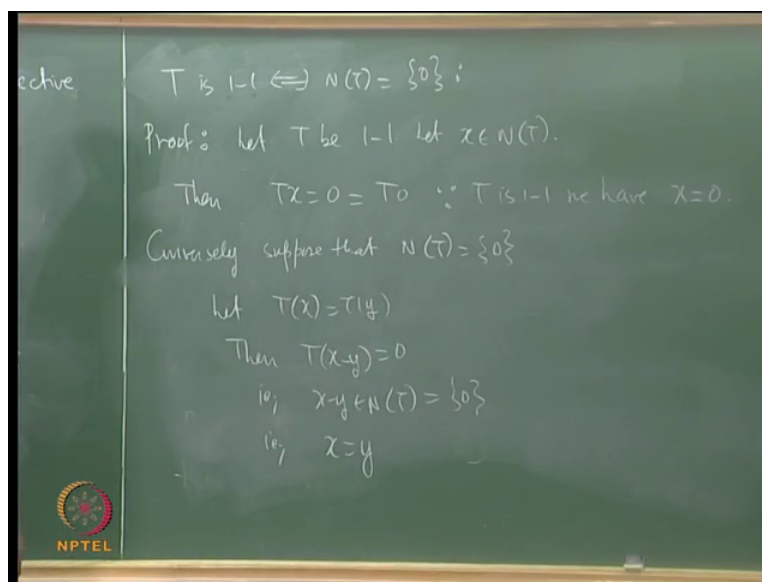 ective
T is 1-1 ⟺ N(T) = {0} :
Proof : Let T be 1-1. Let x ∈ N(T).
Then Tx = 0 = T0 ∵ T is 1-1 we have x = 0.
Conversely suppose that N(T) = {0}
Let T(x) = T(y)
Then T(x-y) = 0
ie; x-y ∈ N(T) = {0}
ie; x = y
NPTEL